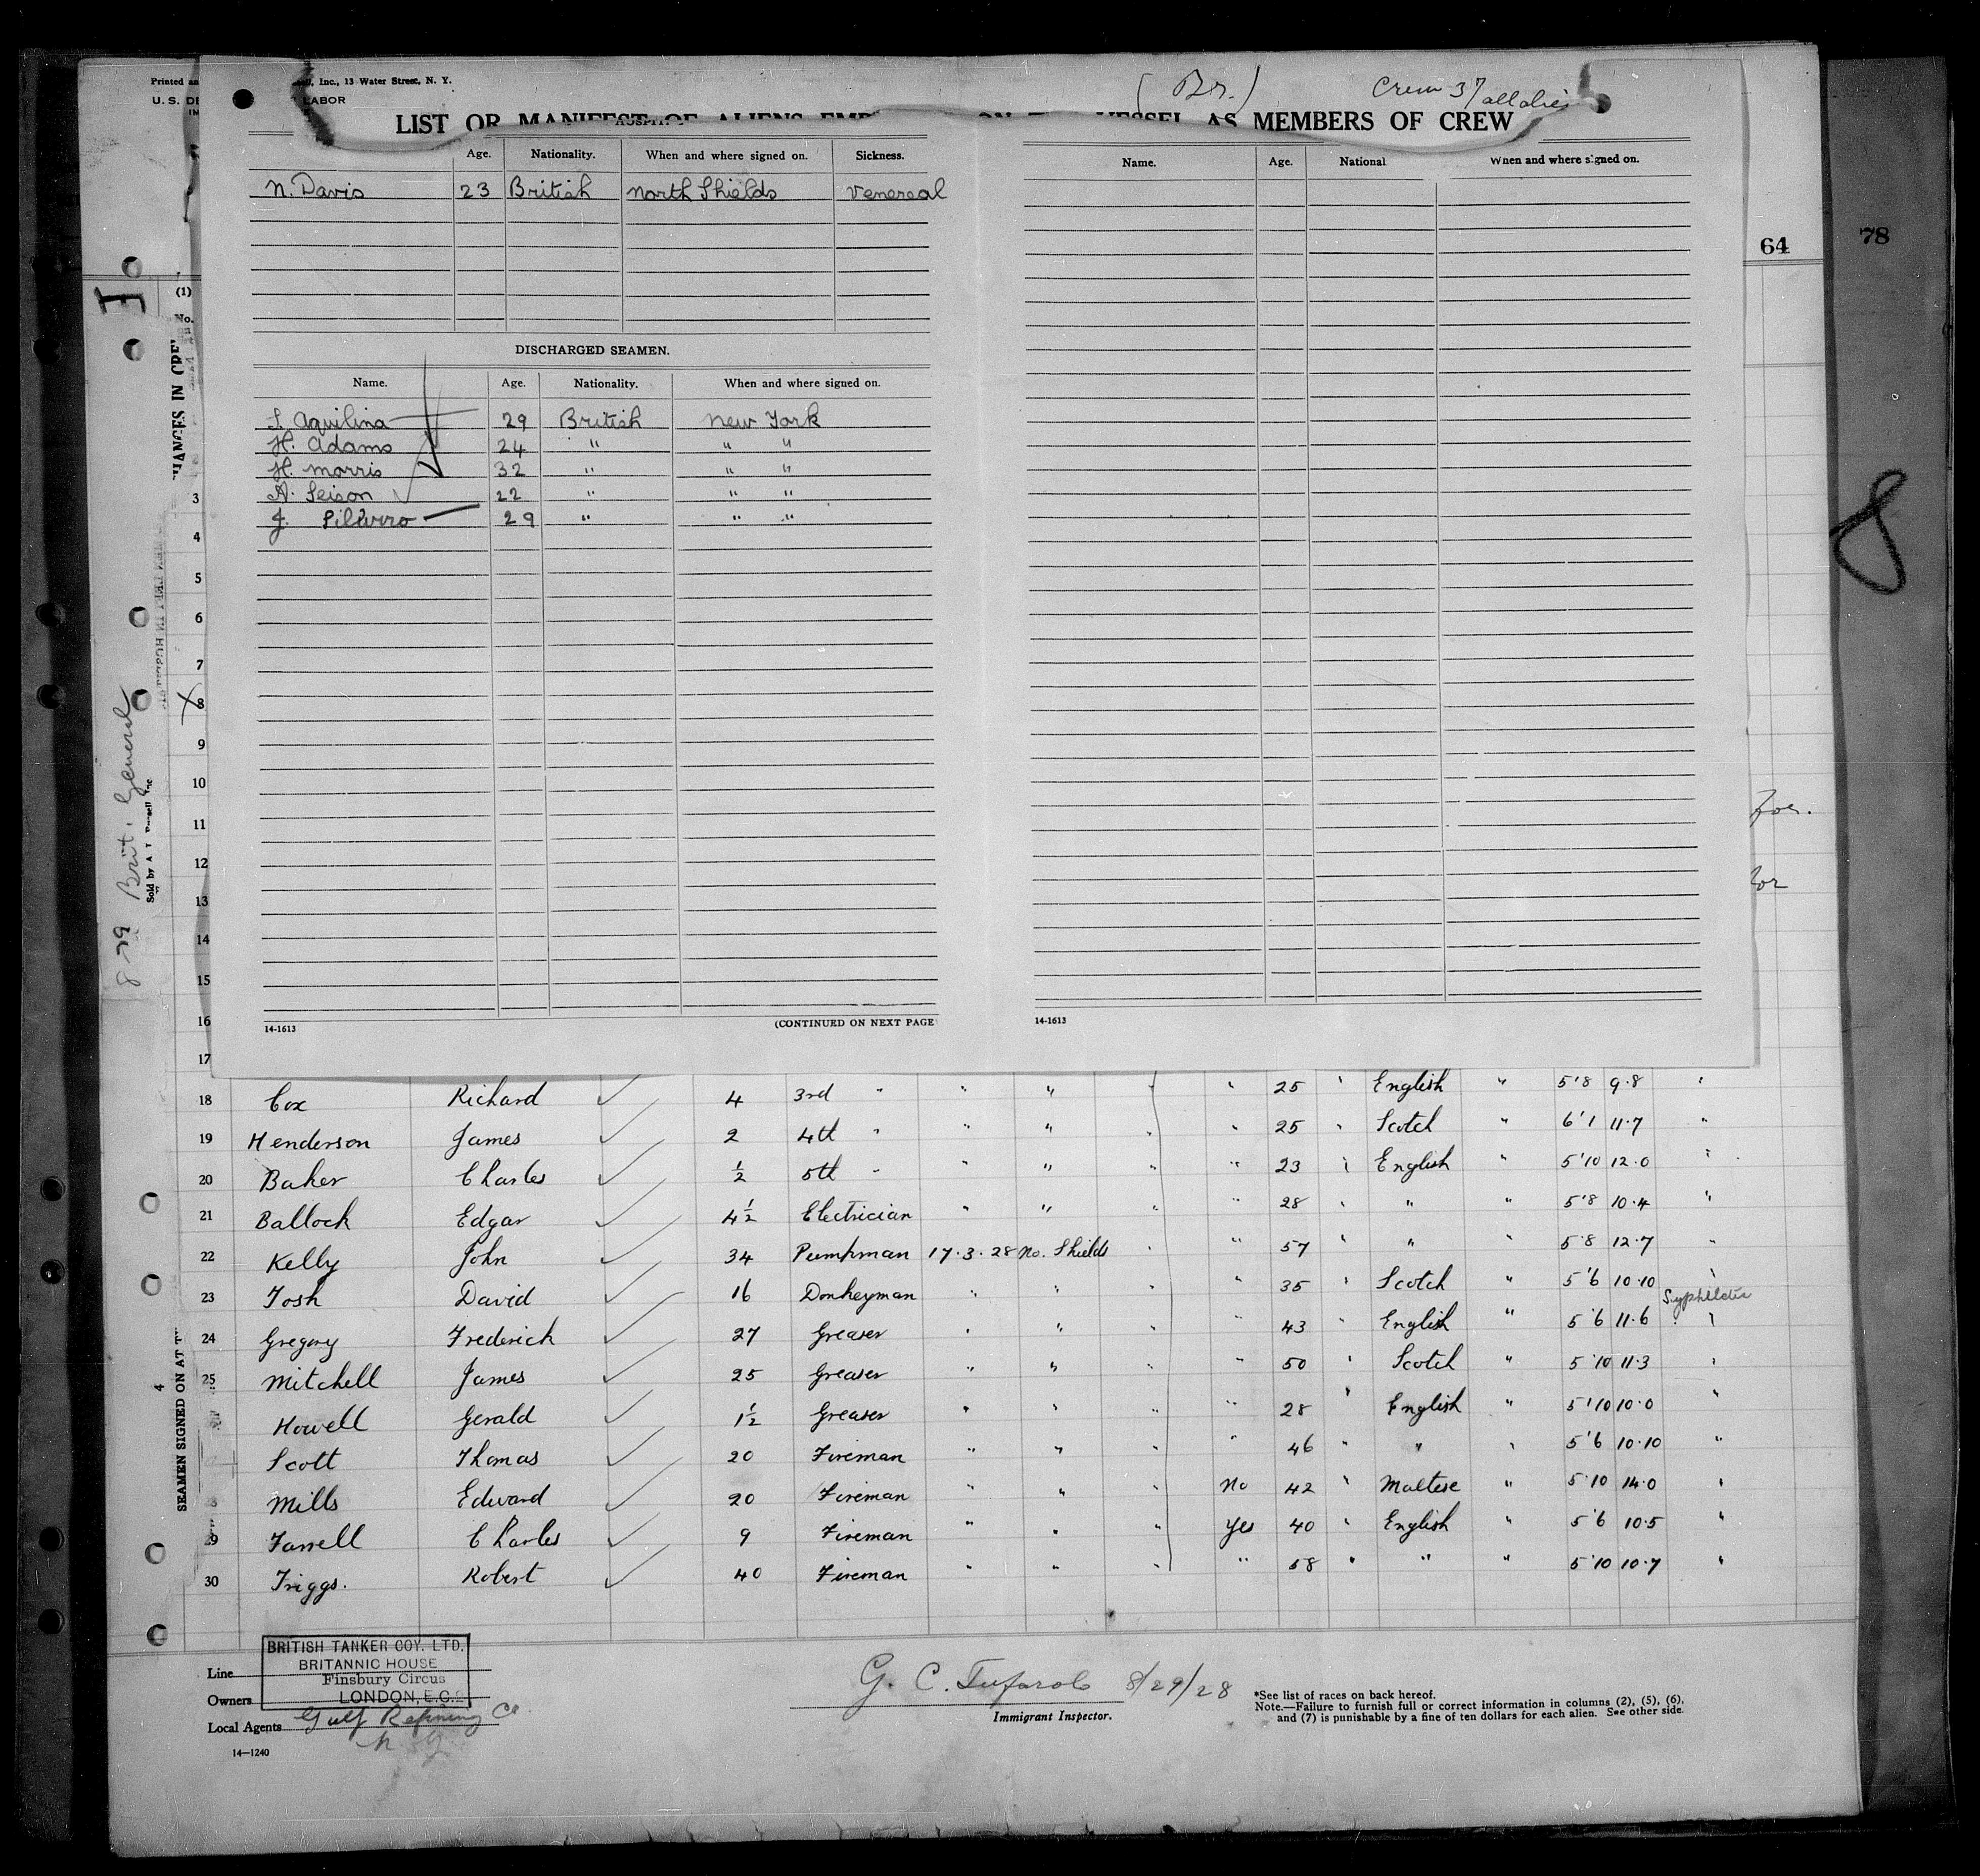 Inc., 13 Water Street, N. Y.
LABOR
(Br.)
Crew 37
LIST OR MANIFEST OF ALIENS AS MEMBERS OF CREW
Age. Nationality. When and where signed on. Sickness.
N. Davis 23 British North Shields Venereal
DISCHARGED SEAMEN.
Name. Age. Nationality. When and where signed on.
S. Aquilina 29 British New York
H. Adams 24 " " "
H. Morris 32 " " "
A. Seison 22 " " "
J. 29 " " "
14-1613 (CONTINUED ON NEXT PAGE
Name. Age. National When and where signed on.
14-1613
64
78
8
(1)
No.
3
4
5
6
7
X 8
9
10
11
12
13
14
15
16
17
8 29 Brit. General
18 Cox Richard ✓ 4 3rd " " " " " 25 " English " 5'8 9.8 "
19 Henderson James ✓ 2 4th " " " " " 25 " Scotch " 6'1 11.7 "
20 Baker Charles ✓ ½ 5th " " " " " 23 " English " 5'10 12.0 "
21 Ballock Edgar ✓ 4½ Electrician " " " " 28 " " " 5'8 10.4 "
22 Kelly John ✓ 34 Pumpman 17.3.28 No. Shields " " 57 " " " 5'8 12.7 "
23 Tosh David ✓ 16 Donkeyman " " " " 35 " Scotch " 5'6 10.10 "
24 Gregory Frederick ✓ 27 Greaser " " " " 43 " English " 5'6 11.6 "
25 Mitchell James ✓ 25 Greaser " " " " 50 " Scotch " 5'10 11.3 "
Howell Gerald ✓ 1½ Greaser " " " " 28 " English " 5'10 10.0 "
Scott Thomas ✓ 20 Fireman " " " " 46 " " " 5'6 10.10 "
Mills Edward ✓ 20 Fireman " " " No 42 " Maltese " 5'10 14.0 "
29 Farrell Charles ✓ 9 Fireman " " " Yes 40 " English " 5'6 10.5 "
30 Triggs. Robert ✓ 40 Fireman " " " " 58 " " " 5'10 10.7 "
SEAMEN SIGNED ON AT
BRITISH TANKER COY. LTD.
BRITANNIC HOUSE
Finsbury Circus
LONDON, E.C.
Line
Owners
Local Agents Gulf Refining Co
14—1240
G. C. 8/29/28
Immigrant Inspector.
*See list of races on back hereof.
Note.—Failure to furnish full or correct information in columns (2), (5), (6),
and (7) is punishable by a fine of ten dollars for each alien. See other side.